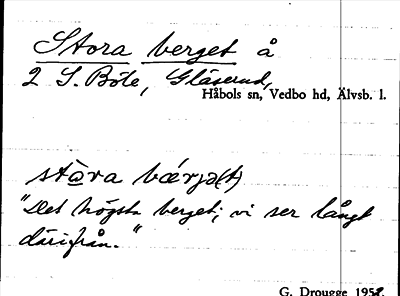 Stora berget å
2 S. Böle, Gläserud,
Håbols sn, Vedbo hd, Älvsb. l.
stɷ̀ra bǽrjə(t)
"Det högsta berget; vi ser långt
därifrån."
G. Drougge 1958.